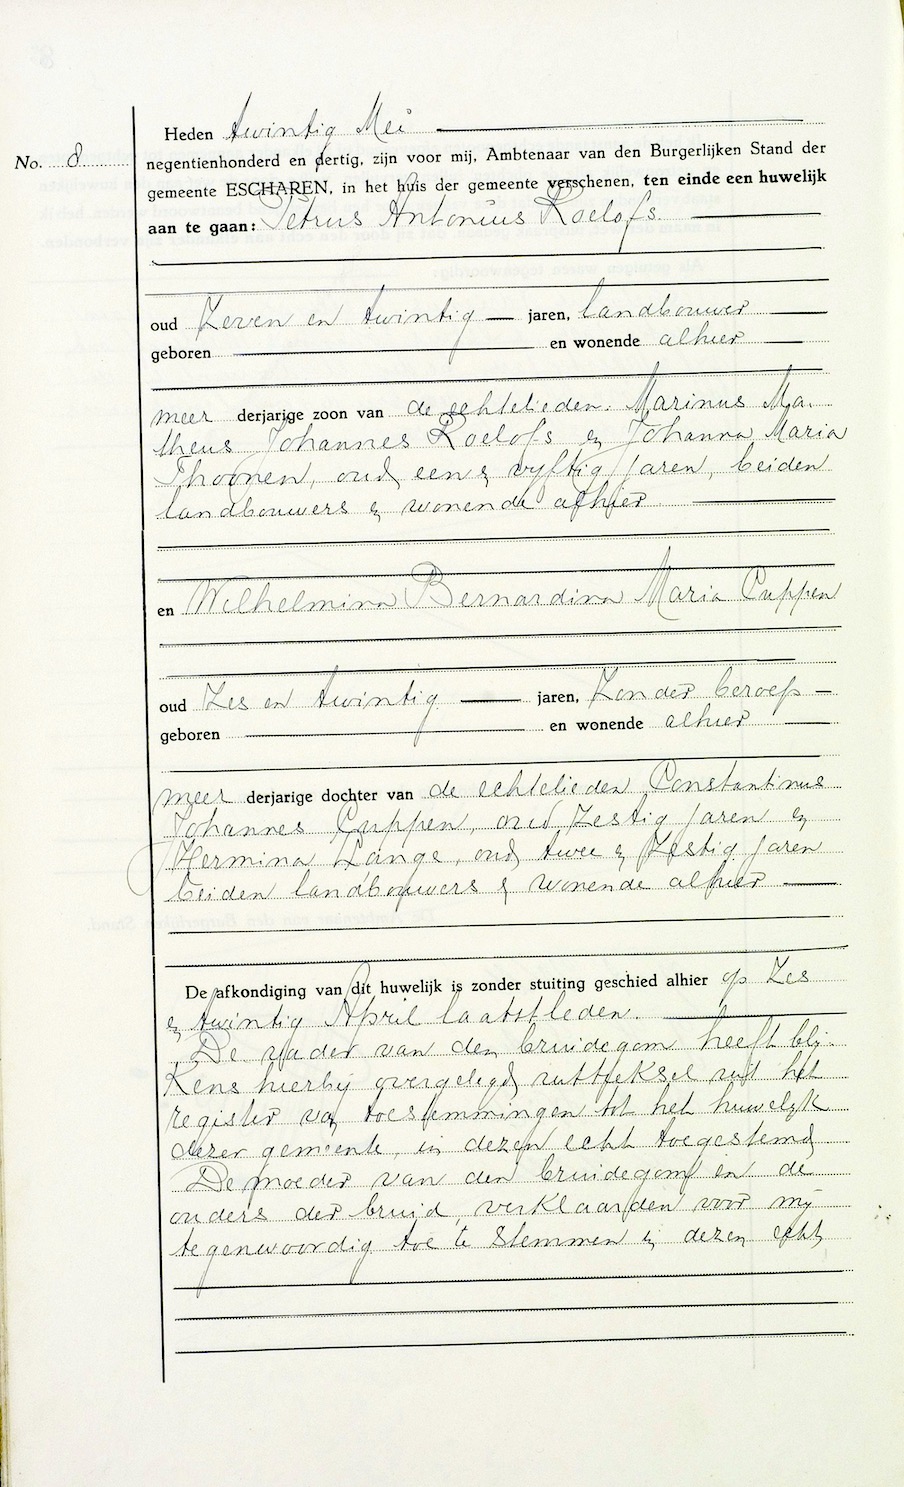 Heden twintig Mei
No. 8
negentienhonderd en dertig, zijn voor mij, Ambtenaar van den Burgerlijken Stand der
gemeente ESCHAREN, in het huis der gemeente verschenen, ten einde een huwelijk
aan te gaan: Petrus Antonius Roelofs.
oud Zeven en twintig jaren, landbouwer
geboren en wonende alhier
meer derjarige zoon van de echtelieden. Marinus Ma-
theus Johannes Roelofs en Johanna Maria
Thoonen, oud een en vyftig jaren, beiden
landbouwers en wonende alhier
en Wilhelmina Bernardina Maria Cuppen
oud Zes en twintig jaren, Zonder beroep
geboren en wonende alhier
meer derjarige dochter van de echtelieden Constantinus
Johannes Cuppen, oud Zestig jaren en
Hermina Lange, oud twee en Zestig jaren
beiden landbouwers en wonende alhier
De afkondiging van dit huwelijk is zonder stuiting geschied alhier op Zes
en twintig April laatstleden.
De vader van den bruidegom heeft blij-
kens hierbij overgelegd uittreksel uit het
register van toestemmingen tot het huwelyk
dezer gemeente, in dezen echt toegestemd
De moeder van den bruidegom en de
ouders der bruid, verklaarden voor mij
tegenwoordig toe te stemmen in dezen echt,